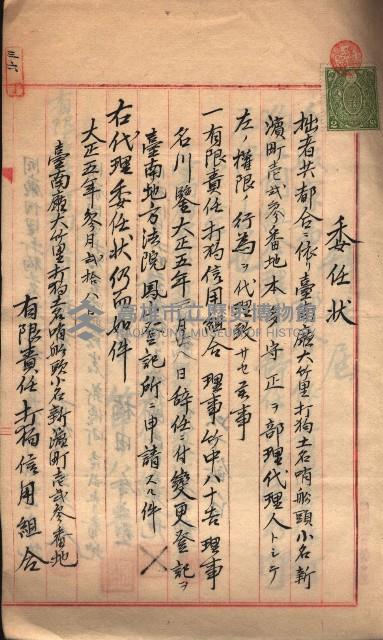 三六
委任状
拙者共都合ニ依リ臺南廳大竹里打狗土名哨船頭小名新
濱町壱弐参番地本多守正ヲ部理代理人トシテ
左ノ權限ノ行為ヲ代理致サセ候事
一有限責任打狗信用組合理事竹中八十吉理事
名川鑒大正五年 月 八日辞任ニ付變更登記ヲ
臺南地方法院鳳山登記所ニ申請スル件
右代理委任状仍而如件
大正五年参月弐拾八日
臺南廳大竹里打狗土名哨船頭小名新濱町壱弐参番地
有限責任打狗信用組合
高雄市立歷史博物館
MUSEUM OF HISTORY